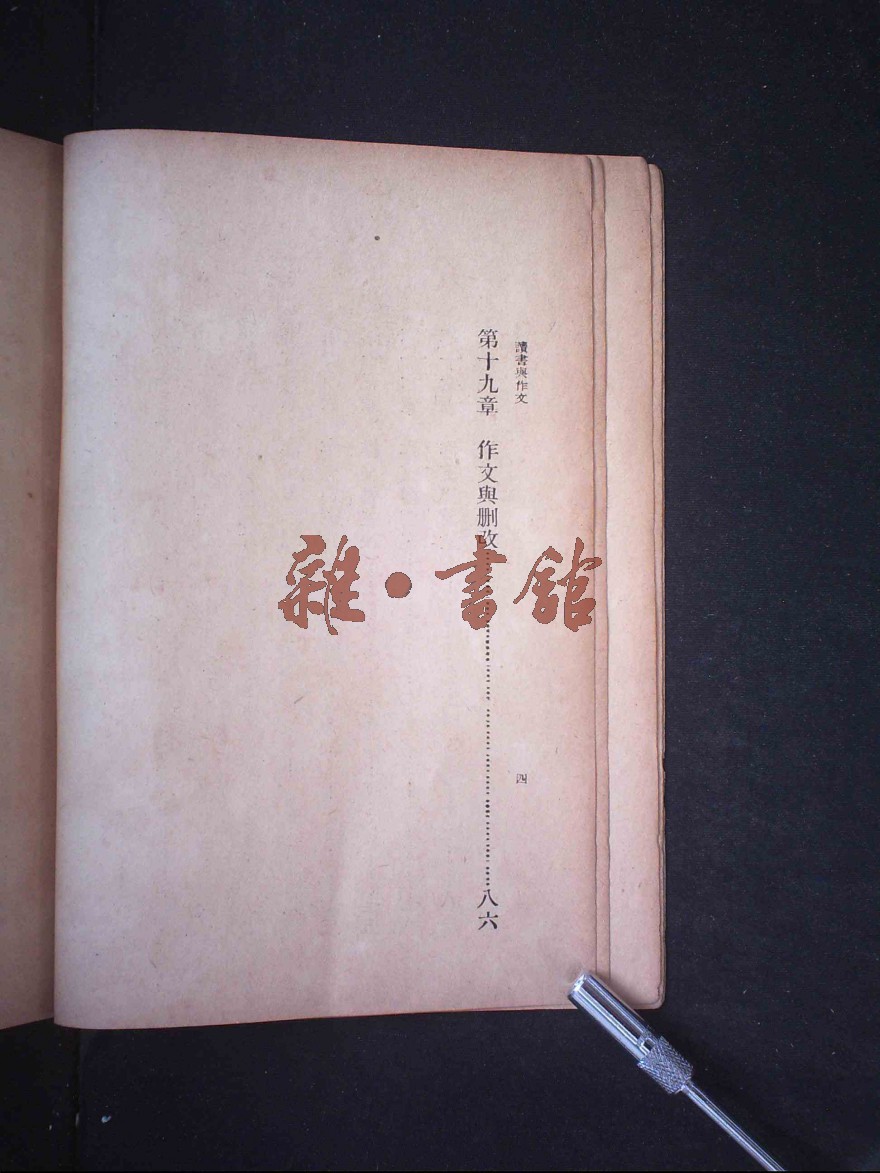 讀書與作文
四
第十九章　作文與删改……八六
雜·書館